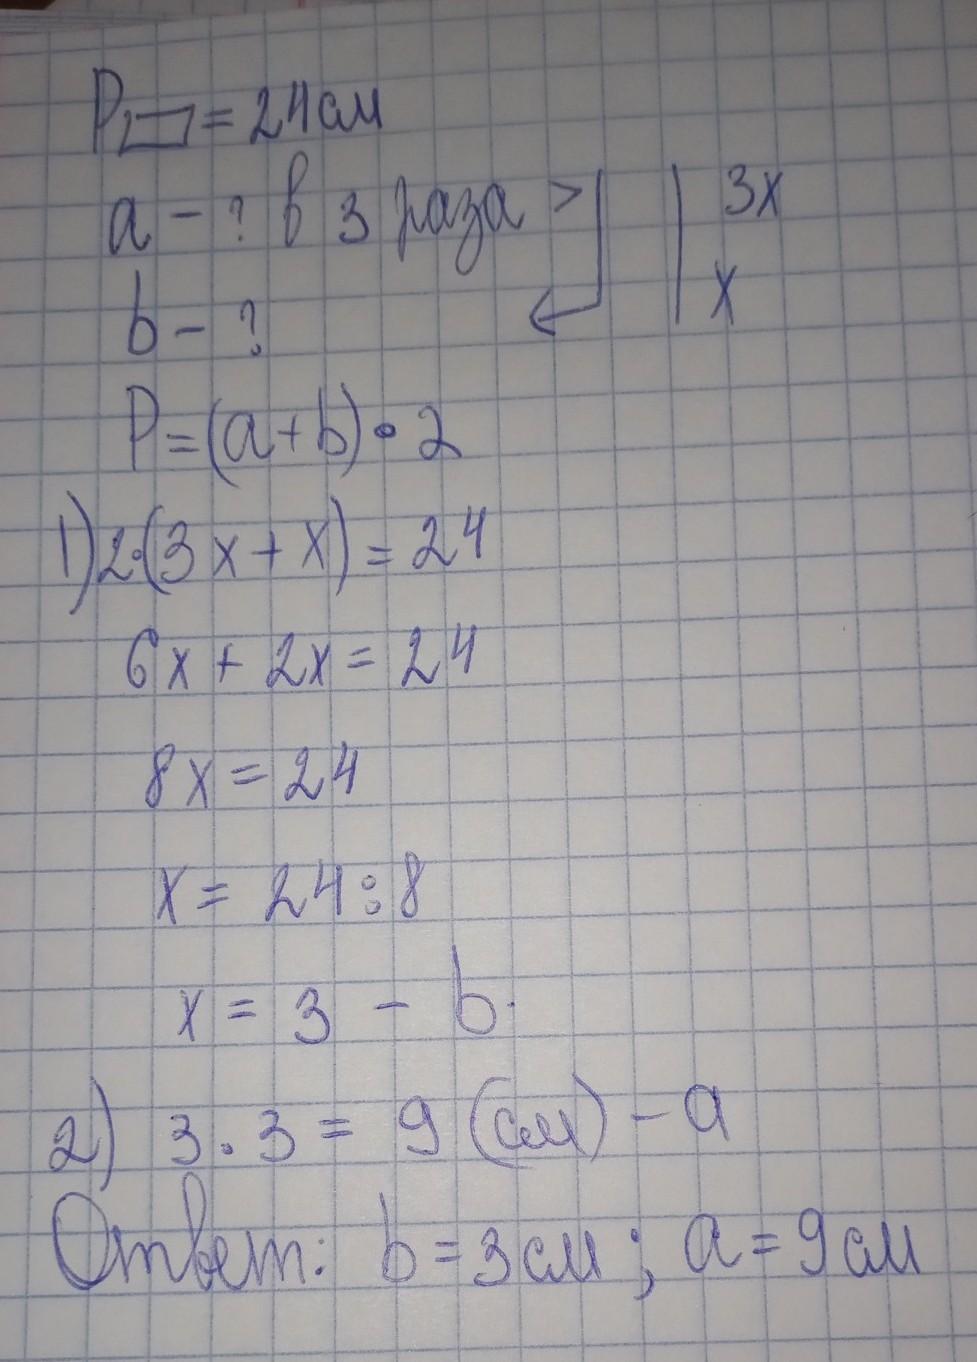 P▭ = 24см
a - ? в 3 раза > | 3x
b - ? | x
P = (a + b) • 2
1) 2·(3x + x) = 24
6x + 2x = 24
8x = 24
x = 24 : 8
x = 3 - b.
2) 3 . 3 = 9 (см) - a
Ответ: b = 3см ; a = 9см